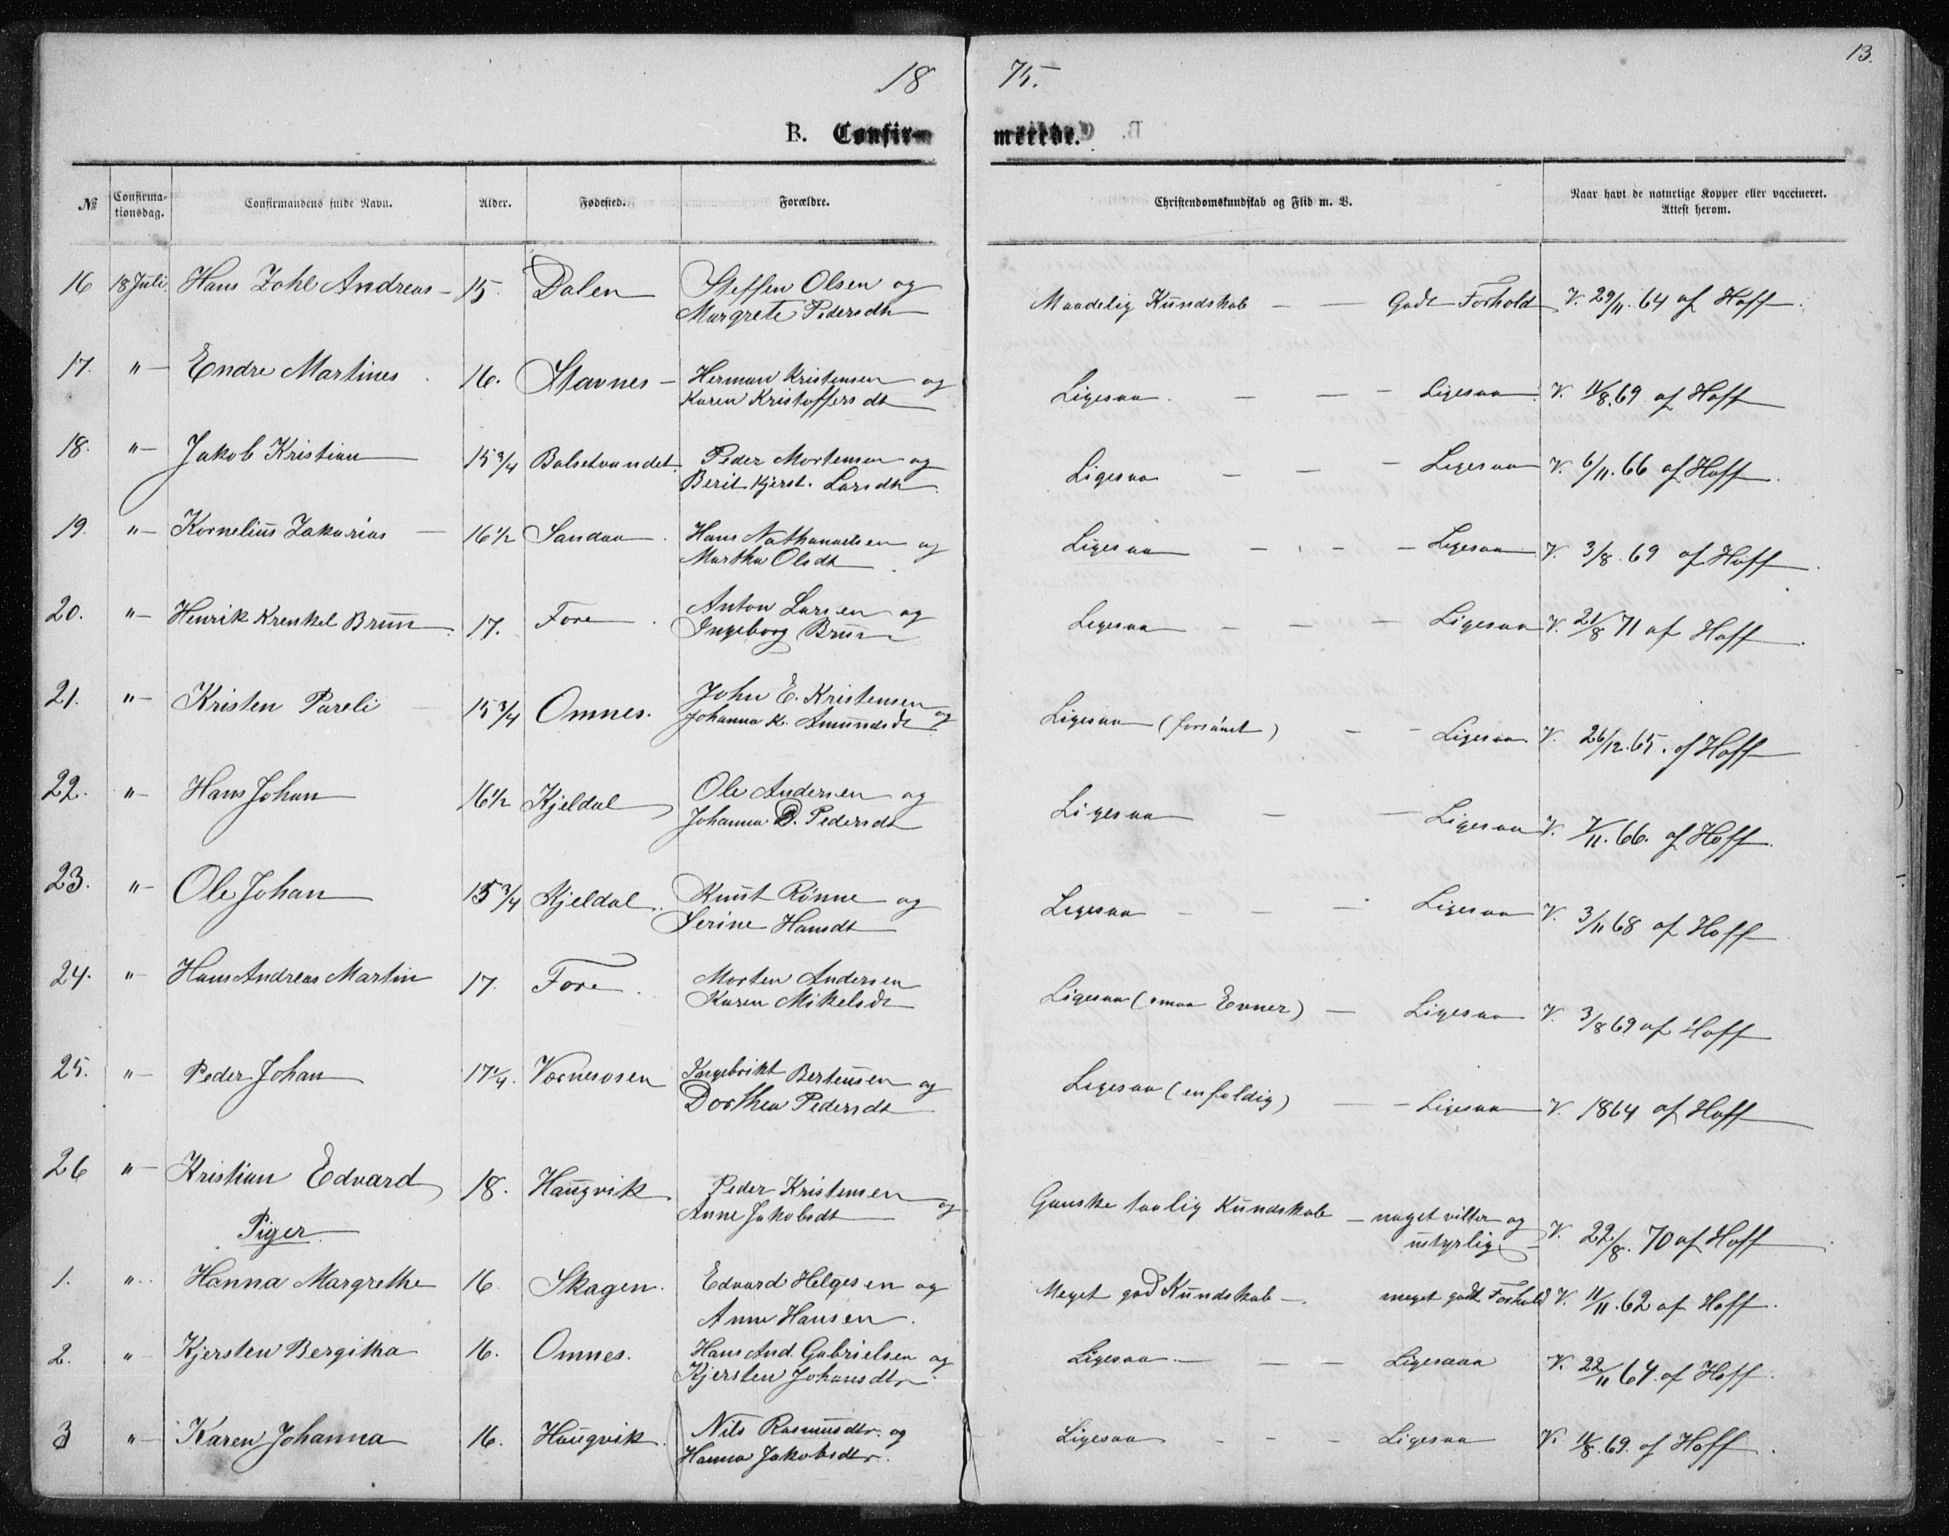 18 75. 13.
B. Confirmerede.
№ Confirmationsdag. Confirmandens fulde Navn. Alder. Fødested. Forældre. Christendomskundskab og Flid m. V. Naar havt de naturlige Kopper eller vaccineret. Attest herom.
16 18 Juli. Hans Johl Andreas 15. Dalen Steffen Olsen og Maadelig Kundskab — — Godt Forhold V. 29/11. 64 af Hoff.
Margrete Pedersdtr
17. " Endre Martines 16. Stavnes Herman Kristensen og Ligesaa — — Ligesaa V. 11/8. 69 af Hoff
Karen Kristoffersdt
18. " Jakob Kristian 15 3/4 Balsetvandet. Peder Mortensen og Ligesaa — — — Ligesaa V. 6/11. 66 af Hoff.
Berit Kjerst. Larsdtr
19. " Kornelius Zakarias 16 1/2 Sandaa Hans Nathanaelsen og Ligesaa — — — Ligesaa V. 3/8. 69 af Hoff.
Martha Olsdt
20. " Henrik Krenkel Brun 17. Fore Anton Larsen og Ligesaa — — — Ligesaa V. 21/8 71 af Hoff.
Ingeborg Brun
21. " Kristen Pareli 15 3/4 Omnes. John E. Kristensen og Ligesaa (forsömt) — — Ligesaa. V. 26/12. 65. af Hoff
Johanna K. Amundsdt
22. " Hans Johan 16 1/2 Kjeldal Ole Andersen og Ligesaa — — Ligesaa V. 7/11. 66. af Hoff.
Johanna D. Pedersdt
23. " Ole Johan 15 3/4 Kjeldal. Knut Rönne og Ligesaa — — — Ligesaa V. 3/11 68 af Hoff
Serine Hansdt
24. " Hans Andreas Martin 17. Fore. Morten Andersen Ligesaa (smaa Evner) — Ligesaa V. 3/8 69 af Hoff
Karen Mikelsdt
25. " Peder Johan 17 1/4. Værnesosen Ingebrikt Bertensen og Ligesaa (enfoldig) — — Ligesaa V. 1864 af Hoff
Dorthea Pedersdt
26 " Kristian Edvard 18. Haugvik Peder Kristensen og Ganske taalig Kundskab — noget vilter og V. 22/8. 70 af Hoff.
Anne Jakobsdt ustyrlig —
Piger
1. " Hanna Margrethe 16. Skagen. Edvard Helgesen og Meget god Kundskab —. meget godt Forhold V. 11/11. 62 af Hoff.
Anne Hansen.
2. " Kjersten Bergitha 16. Omnes. Hans And. Gabrielsen og Ligesaa — — — Ligesaaa V. 22/11 64. af Hoff.
Kjersten Johansdtr
3 " Karen Johanna 16. Haugvik. Nils Rasmusdtr. og Ligesaa — — — Ligesaa V. 11/8. 69. af Hoff.
Hanna Jakobsdtr.